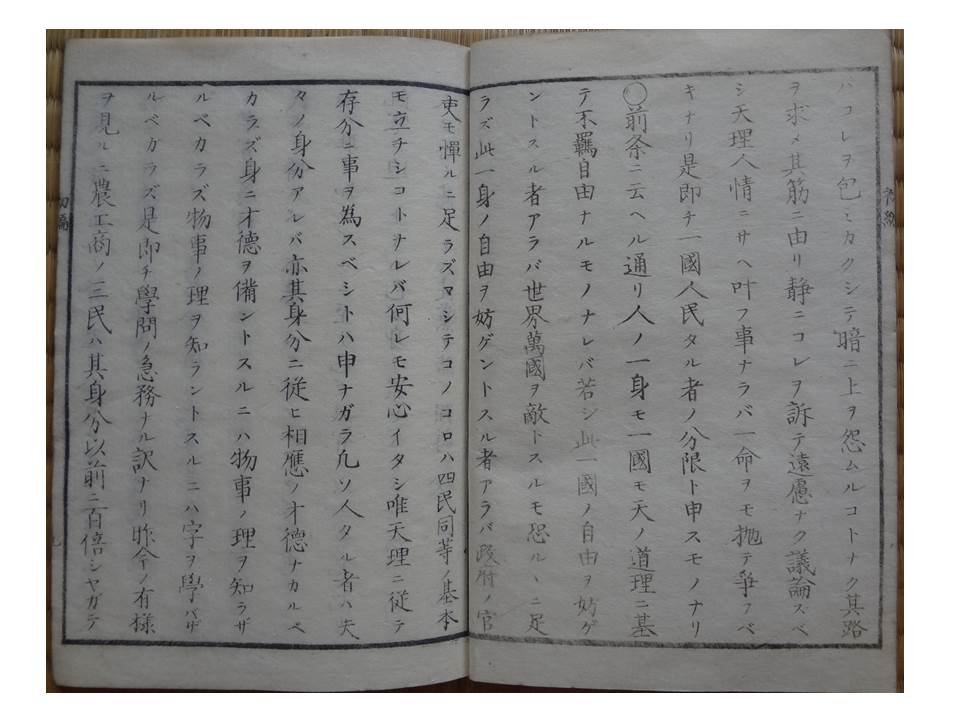 バコレヲ包ミカクシテ暗ニ上ヲ怨ムルコトナク其路
ヲ求メ其筋ニ由リ静ニコレヲ訴テ遠慮ナク議論スベ
シ天理人情ニサヘ叶フ事ナラバ一命ヲモ抛テ爭フベ
キナリ是即チ一國人民タル者ノ分限ト申スモノナリ
○前条ニ云ヘル通リ人ノ一身モ一國モ天ノ道理ニ基
テ不羈自由ナルモノナレバ若シ此一國ノ自由ヲ妨ゲ
ントスル者アラバ世界萬國ヲ敵トスルモ恐ルヽニ足
ラズ此一身ノ自由ヲ妨ゲントスル者アラバ政府ノ官
吏モ憚ルニ足ラズマシテコノコロハ四民同等ノ基本
モ立チシコトナレバ何レモ安心イタシ唯天理ニ従テ
存分ニ事ヲ為スベシトハ申ナガラ凢ソ人タル者ハ夫
々ノ身分アレバ亦其身分ニ従ヒ相應ノ才德ナカルベ
カラズ身ニ才德ヲ備ントスルニハ物事ノ理ヲ知ラザ
ルベカラズ物事ノ理ヲ知ラントスルニハ字ヲ學バザ
ルベカラズ是即チ學問ノ急務ナル訳ナリ昨今ノ有様
ヲ見ルニ農工商ノ三民ハ其身分以前ニ百倍シヤガテ
初編